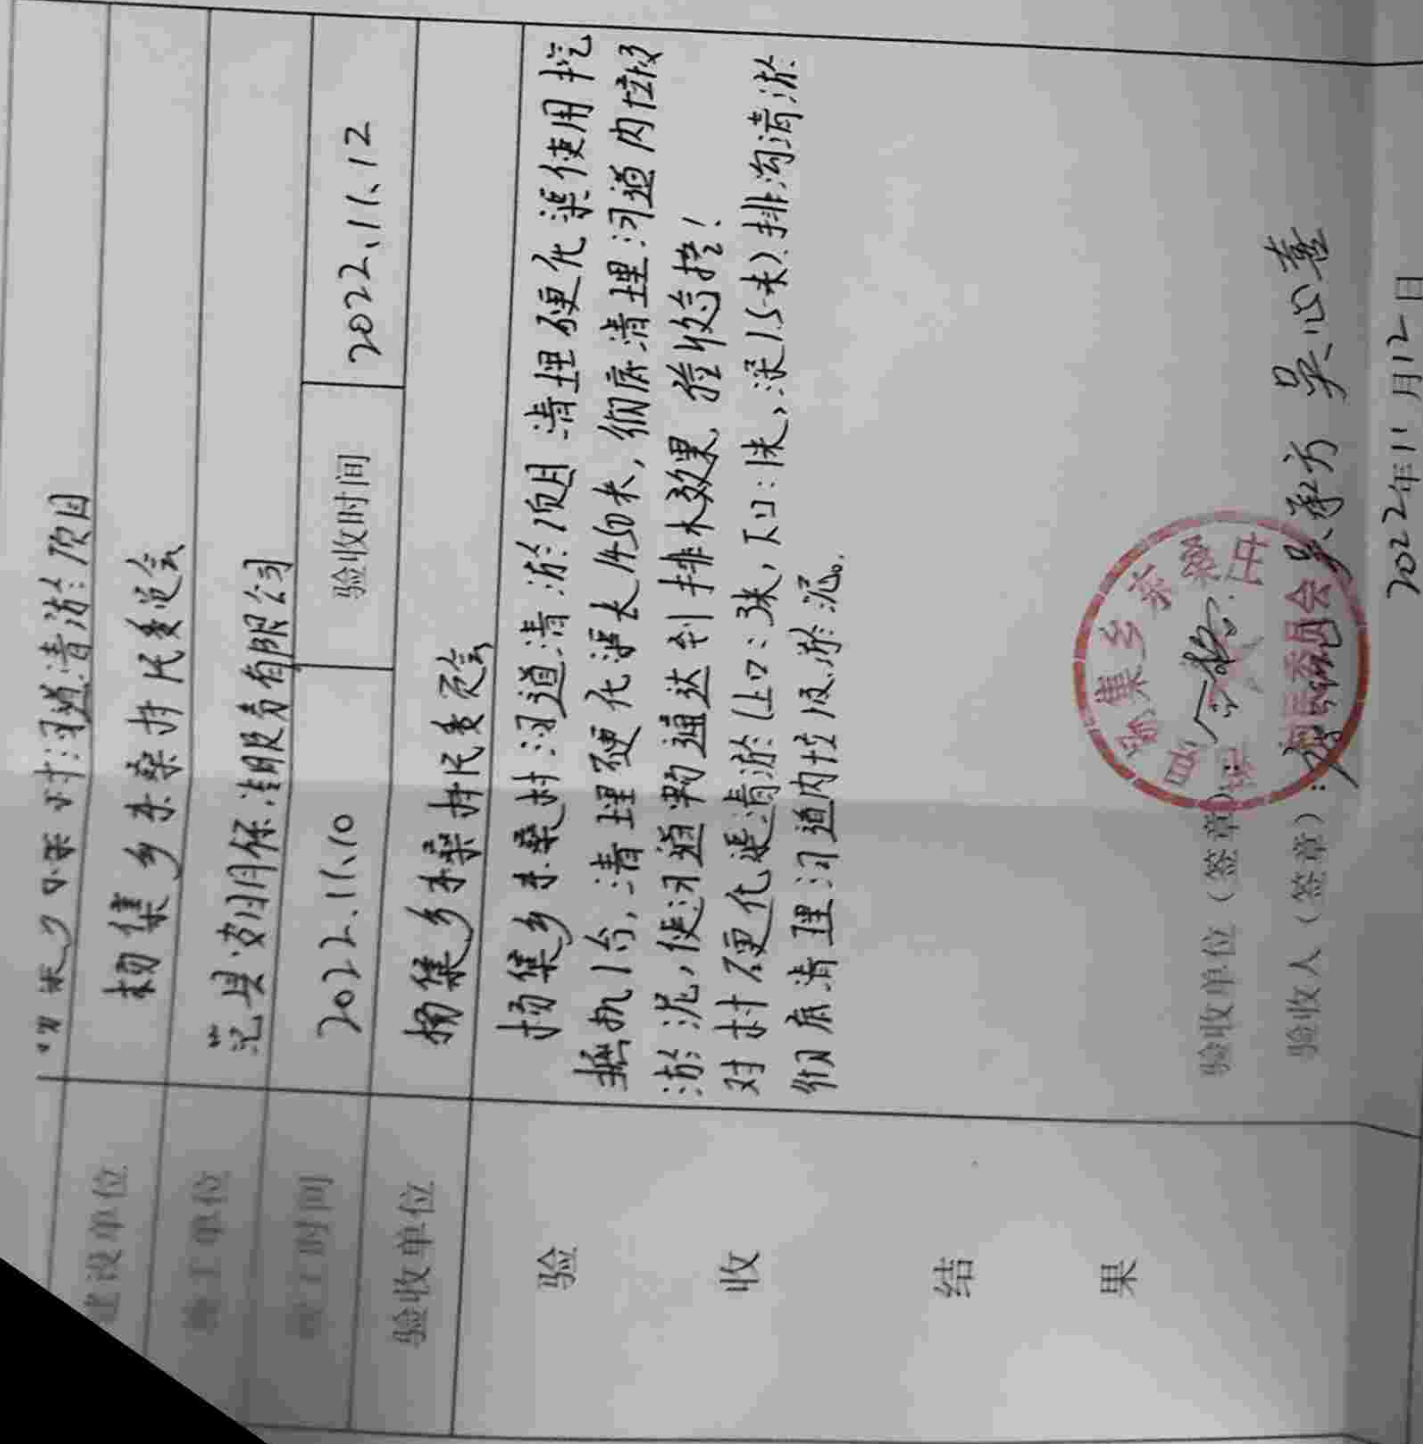 河道清淤项目
建设单位 杨集乡东桑村民委员会
施工单位 范县 保洁服务有限公司
竣工时间 2022.11.10 验收时间 2022.11.12
验收单位 杨集乡东桑村民委员会
验收结果
杨集乡东桑村河道清淤项目 清理硬化渠使用挖
掘机1台,清理硬化渠长1450米,彻底清理河道内垃圾
淤泥,使河道畅通达到排水效果,验收合格!
对村硬化渠清淤(上口:3米,下口:1米,深1.5米)排沟清淤
彻底清理河道内垃圾淤泥。
验收单位(签章):
范县杨集乡东桑村
村民委员会
验收人(签章): 吴承方 吴心善
2022年11月12日